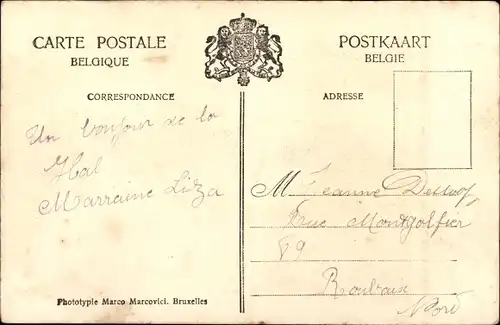 CARTE POSTALE
BELGIQUE
POSTKAART
BELGIE
CORRESPONDANCE
ADRESSE
Un bonjour de la
Hal
Marraine Litza
M Jeanne
Rue Montgolfier
89
Roubaix
Nord
Phototypie Marco Marcovici. Bruxelles